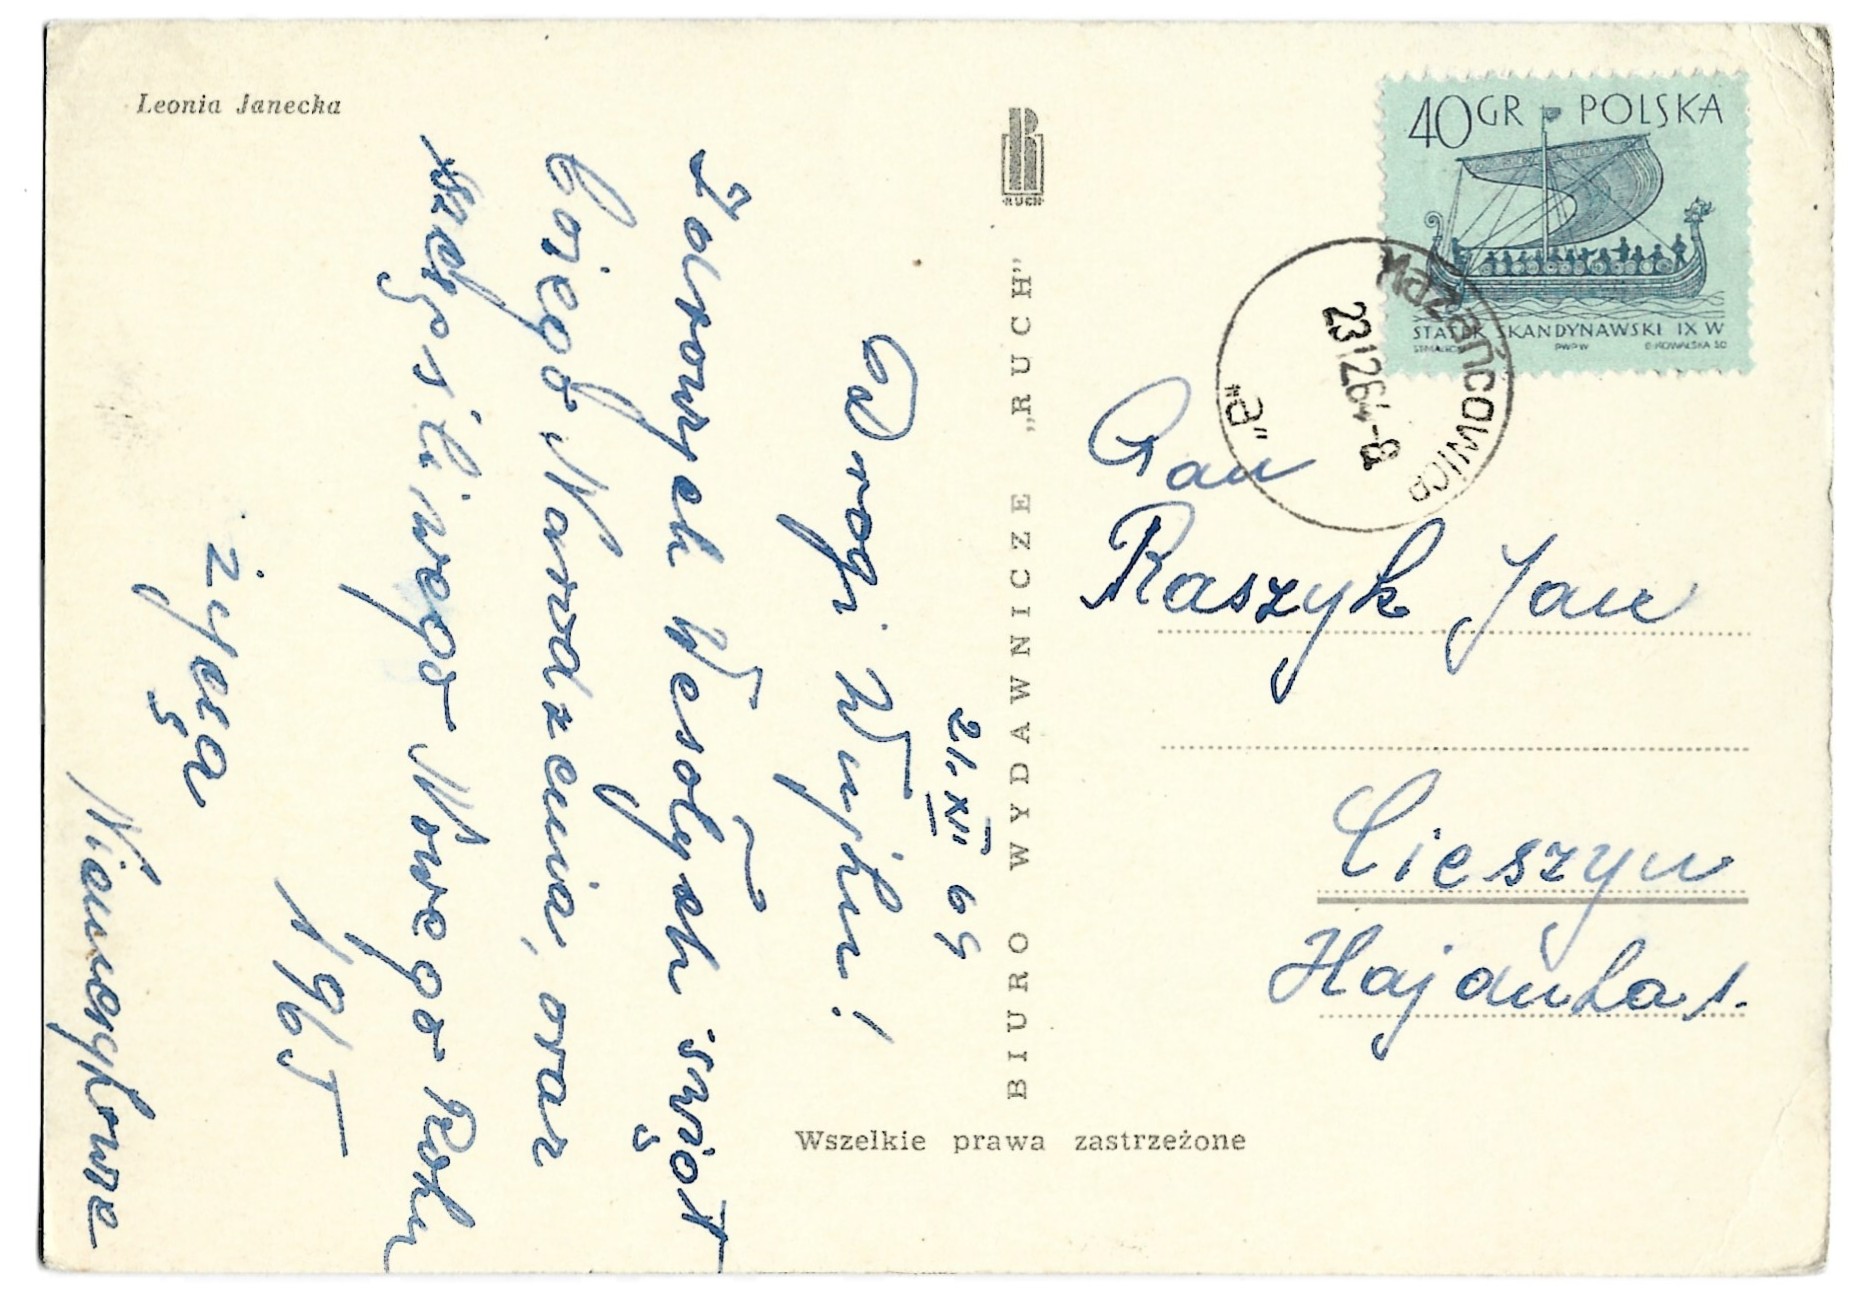 Leonia Janecka
21. XII 64
Drogi Wujku!
Zdrowych Wesołych świąt
Bożego Narodzenia, oraz
szczęśliwego Nowego Roku
1965
życzą
BIURO WYDAWNICZE „RUCH”
RUCH
Wszelkie prawa zastrzeżone
40 GR POLSKA
STATEK SKANDYNAWSKI IX W
PWPW
Mazańcowice
23.12.64-8
"a"
Pan
Raszyk Jan
Cieszyn
Hajduka 1.